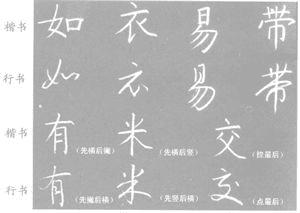 楷书 如 衣 易 带
行书 如 衣 易 带
楷书 有（先横后撇） 米（先横后竖） 交（捺最后）
行书 有（先撇后横） 米（先竖后横） 交（点最后）